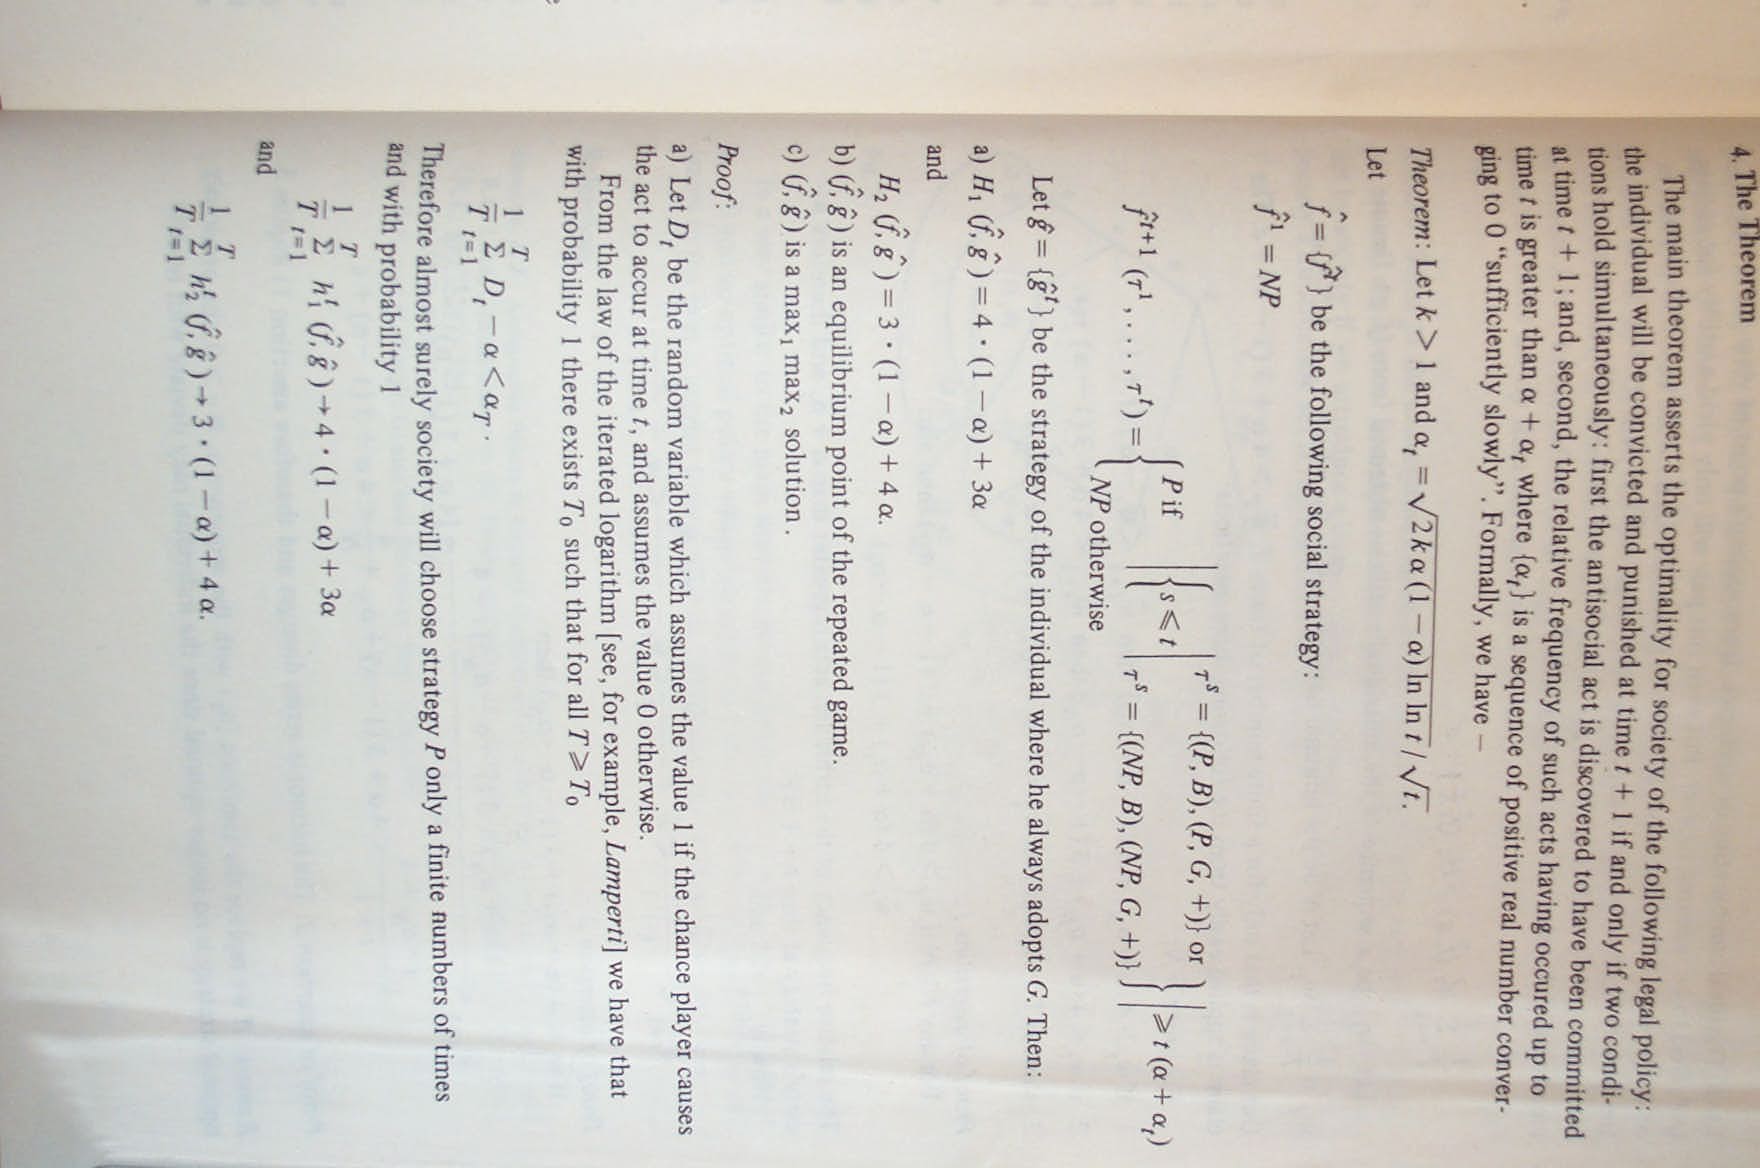 4. The Theorem
The main theorem asserts the optimality for society of the following legal policy:
the individual will be convicted and punished at time t + 1 if and only if two condi-
tions hold simultaneously: first the antisocial act is discovered to have been committed
at time t + 1; and, second, the relative frequency of such acts having occured up to
time t is greater than α + αₜ where {αₜ} is a sequence of positive real number conver-
ging to 0 “sufficiently slowly”. Formally, we have —
Theorem: Let k > 1 and αₜ = √2kα(1 − α) ln ln t / √t.
Let
f̂ = {f̂ᵗ} be the following social strategy:
f̂¹ = NP
f̂ᵗ⁺¹ (τ¹, . . . , τᵗ) = { P if | { s ⩽ t | τˢ = {(P, B), (P, G, +)} or τˢ = {(NP, B), (NP, G, +)} } | ⩾ t (α + αₜ)
NP otherwise
Let ĝ = {ĝᵗ} be the strategy of the individual where he always adopts G. Then:
a) H₁ (f̂, ĝ) = 4 · (1 − α) + 3α
and
H₂ (f̂, ĝ) = 3 · (1 − α) + 4α.
b) (f̂, ĝ) is an equilibrium point of the repeated game.
c) (f̂, ĝ) is a max₁ max₂ solution.
Proof:
a) Let Dₜ be the random variable which assumes the value 1 if the chance player causes
the act to accur at time t, and assumes the value 0 otherwise.
From the law of the iterated logarithm [see, for example, Lamperti] we have that
with probability 1 there exists T₀ such that for all T ⩾ T₀
1/T Σ_{t=1}^{T} Dₜ − α < α_T .
Therefore almost surely society will choose strategy P only a finite numbers of times
and with probability 1
1/T Σ_{t=1}^{T} h₁ᵗ (f̂, ĝ) → 4 · (1 − α) + 3α
and
1/T Σ_{t=1}^{T} h₂ᵗ (f̂, ĝ) → 3 · (1 − α) + 4α.